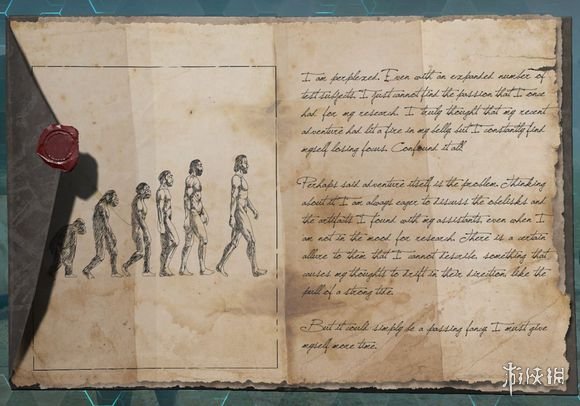 I am perplexed. Even with an expanded number of
test subjects, I just cannot find the passion that I once
had for my research. I truly thought that my recent
adventure had lit a fire in my belly, but I constantly find
myself losing focus. Confound it all!
Perhaps said adventure itself is the problem. Thinking
about it I am always eager to discuss the obelisks and
the artifacts I found with my assistants, even when I
am not in the mood for research. There is a certain
allure to them that I cannot describe, something that
causes my thoughts to drift in their direction, like the
pull of a strong tide.
But it could simply be a passing fancy. I must give
myself more time.
游侠网